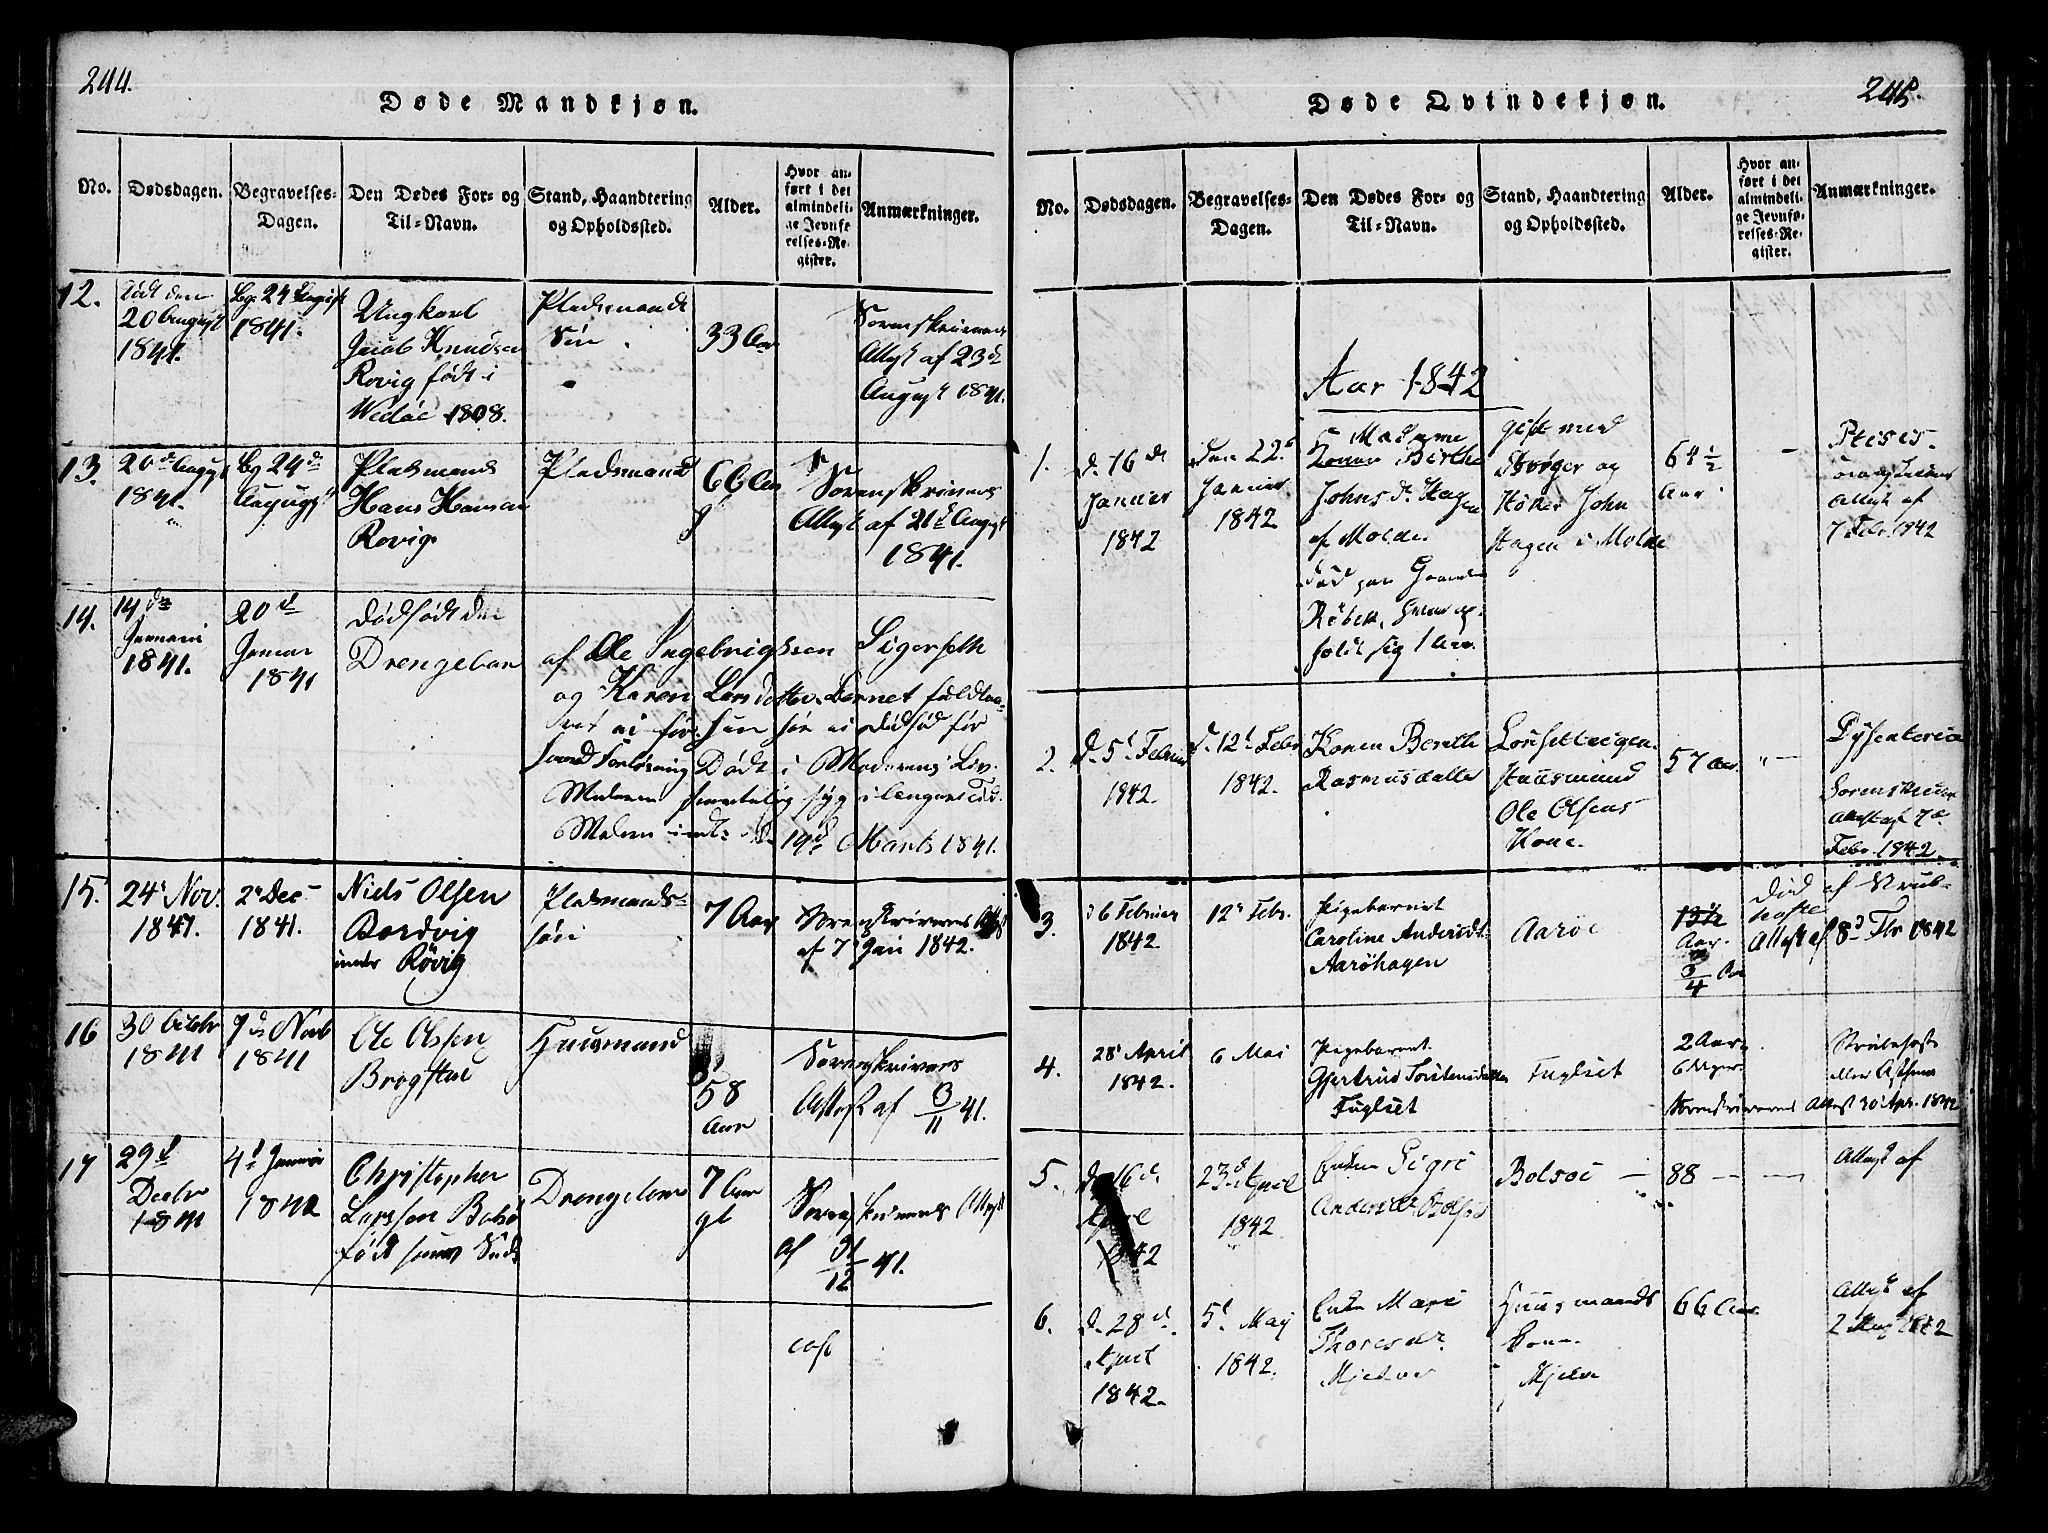 244.
Døde Mandkjøn.
No.
Dødsdagen.
Begravelses-
Dagen.
Den Dødes For- og
Til-Navn.
Stand, Haandtering
og Opholdssted.
Alder.
Hvor an-
ført i det
almindeli-
ge Jevnfø
relses-Re-
gister.
Anmærkninger.
12.
20 August
1841.
24 August
1841.
Ungkarl
Jacob Knudsen
Rovig født i
Wedøe 1808.
Pladsmands
Søn
33 Aar
Sorenskriverens
Attest af 23d
August 1841.
13.
20d August
1841.
24de
August
Pladsmand
Hans Hansen
Rovig
Pladsmand
66 Aar
Sorenskriverens
Attest af 21d August
1841.
14.
14de
Januari
1841.
20d
Januar
1841
dødfødt
Drengebarn
af Ole Ingebrigtsen Sigerseth
og Karen Larsdatter
Død i Moderens Liv.
19d Marts 1841.
15.
24d Nov.
1841.
2d Dec
1841.
Niels Olsen
Bordvig
under Røvig
Pladsmands-
søn
7 Aar
Sorenskriverens Attest
af 7 Jan 1842.
16
30 Octobr
1841
7de Novb
1841
Ole Olsen
Bragstue
Huusmand
58
Aar
Sorenskrivers
Attest af 3/11 41.
17
29d
Decbr
1841
4d Januar
1842
Christopher
Larssen Bolsø
Drengebarn
7 Aar
gl
Sorenskriverens Attest
af 31/12 41.
245.
Døde Qvindekjøn.
No.
Dødsdagen.
Begravelses-
Dagen.
Den Dødes For- og
Til-Navn.
Stand, Haandtering
og Opholdssted.
Alder.
Hvor an-
ført i det
almindeli-
ge Jevnfø-
relses-Re-
gister.
Anmærkninger.
Aar 1842
1.
d. 16de
Januar
1842
den 22d
Januar
1842
Madame
Konen Birthe
Johnsdr. Hagen
af Molde
gift med
Borger og
Høker John
Hagen i Molde
64 1/2
Aar
Attest af
7 Febr. 1842
2.
d. 5d Februar
1842.
d. 12d Febr
1842.
Konen Berethe
Rasmusdatter
Huusmand
Ole Olsens
Kone.
57 Aar.
Dysenteria
Sorenskriver
Attest 7d
Febr. 1842
3.
d 6 Februar
1842
12d Febr.
Pigebarnet
Caroline Andersdt.
Aarøhagen
Aarøe
13 1/2
Aar.
3/4 Aar
Død af Strub-
hoste
Attest af 8d Fbr 1842
4.
28d April
1842.
6 Mai
Pigebarnet
Gjertrud Torstensdatter
Fuglset
Fuglset
2 Aar
6 Mgr.
Strubehoste
eller Asthma
Sorenskriverens Attest 30 Apr. 1842
5.
d. 16d.
April
1842
23d April
1842
Enken Sigri
Andersdr Bolsøe
Bolsøe
88
Attest af
6.
d. 28d.
April
1842.
5d May
1842.
Enken Mari
Thoresdr.
Mjelve
Huusmands
Kone
Mjelve
66 Aar
Attest af
2 May 1842